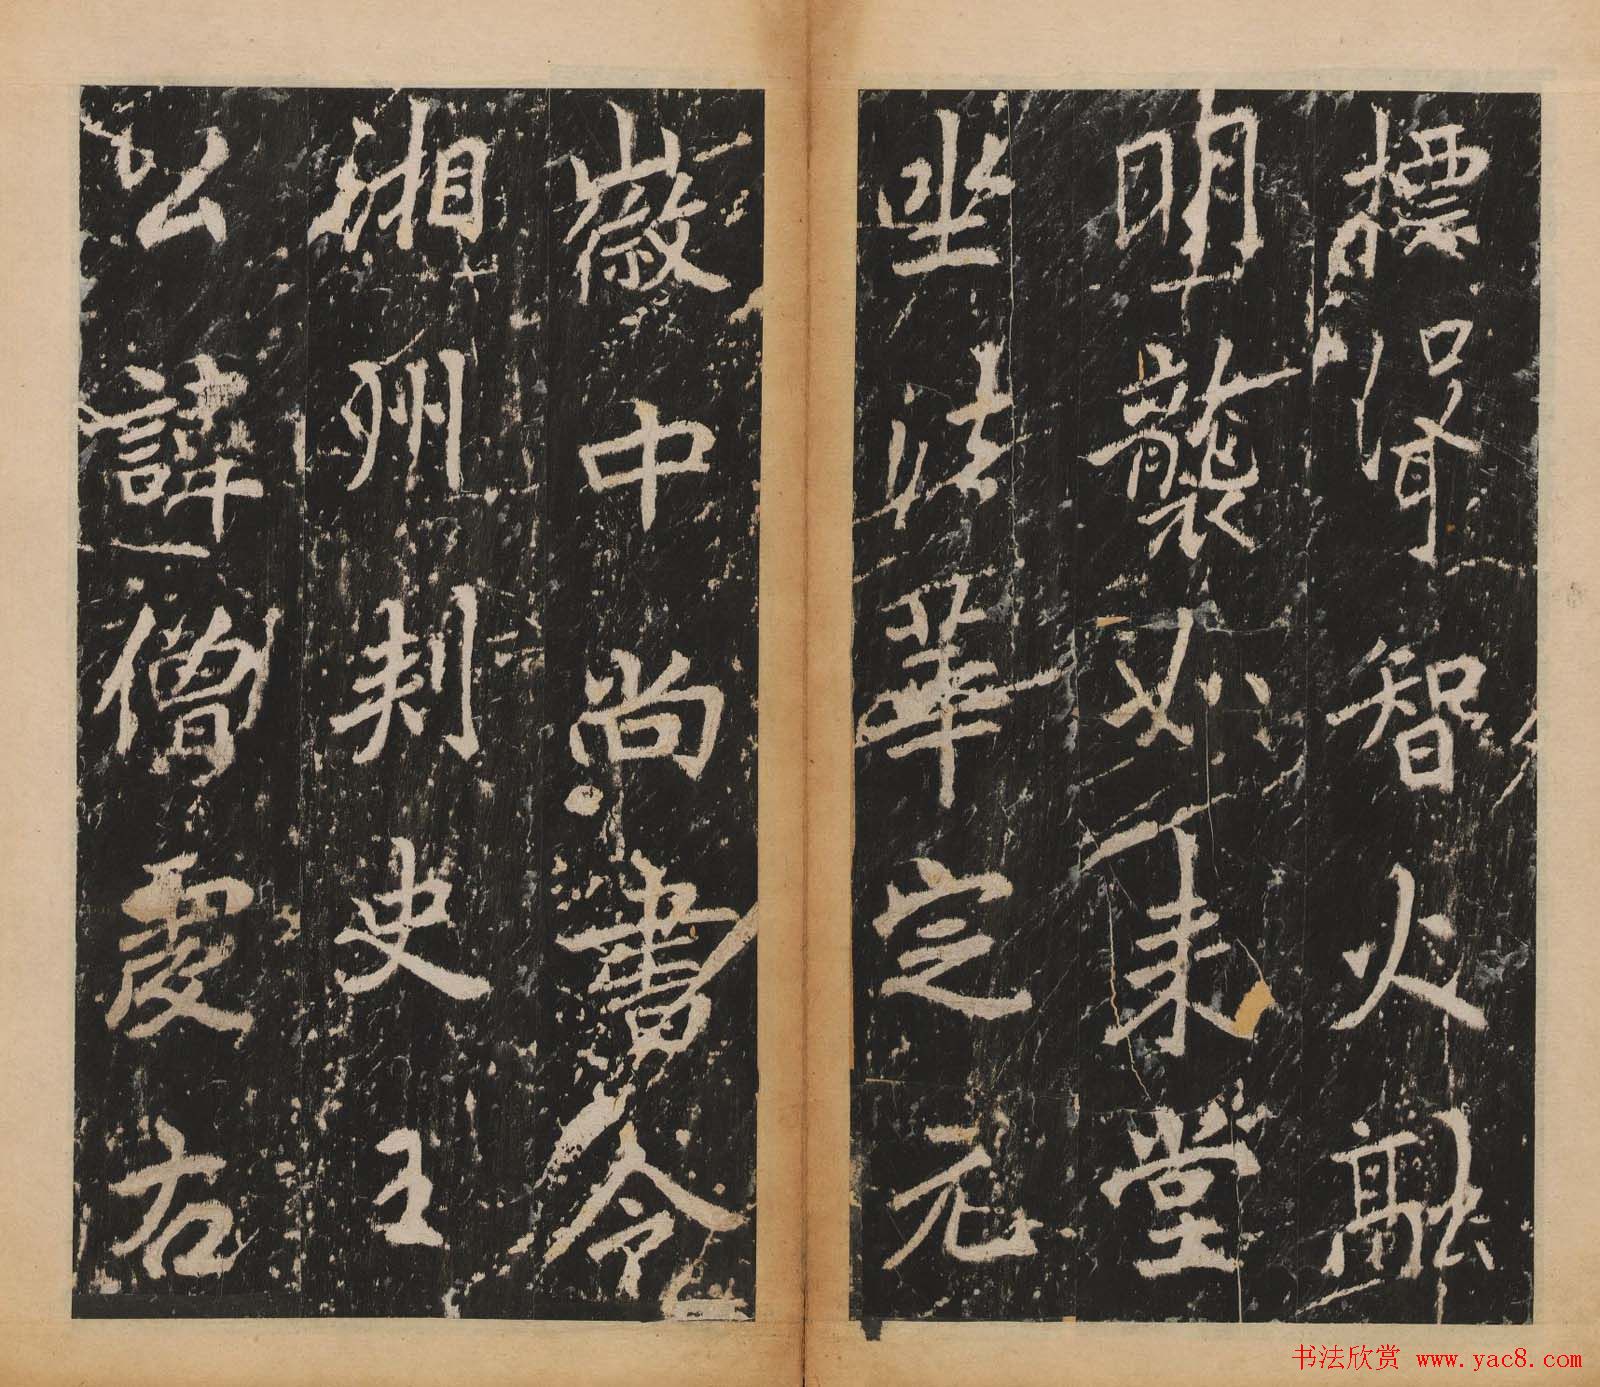 標智火融
明襲如來堂
坐法華定元
徽中尚書令
湘州刺史王
公諱僧虔右
书法欣赏 www.yac8.com